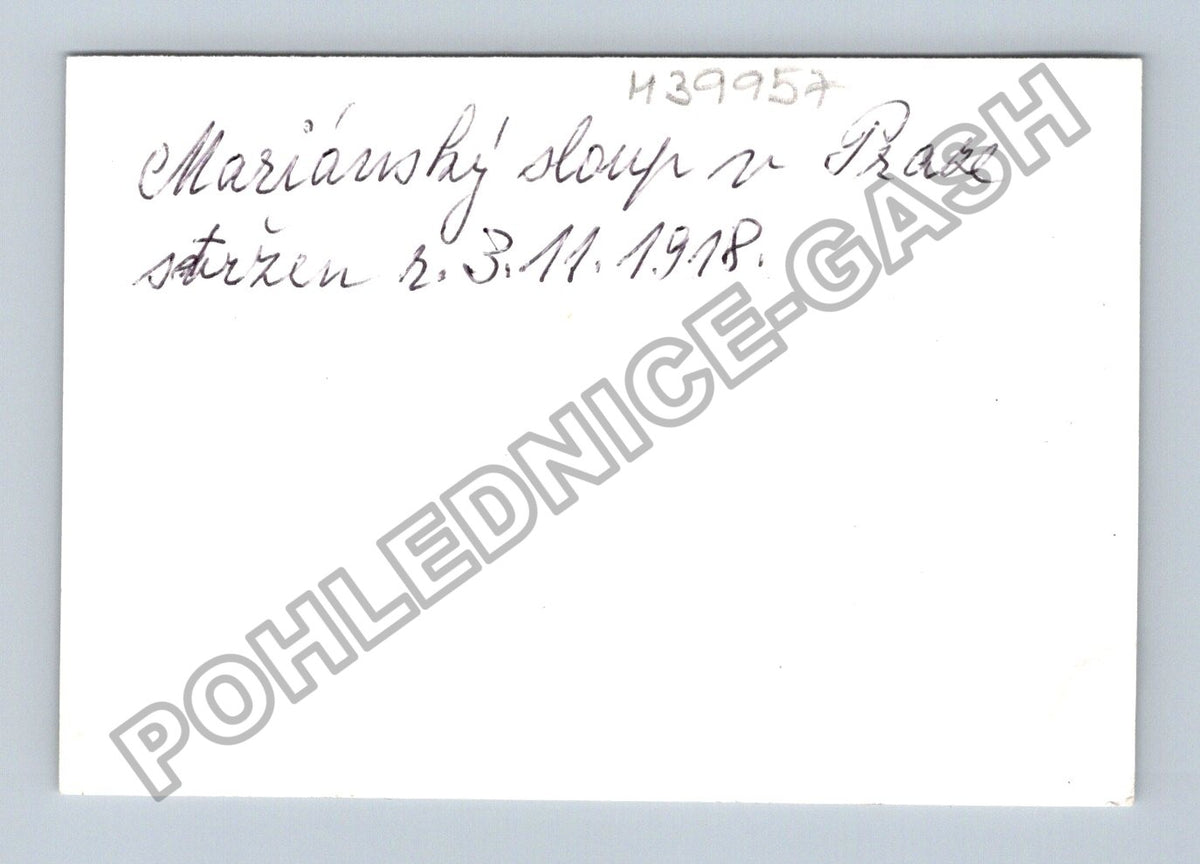 H39957
Mariánský sloup v Praze
stržen r. 3.11.1918.
POHLEDNICE-GASH